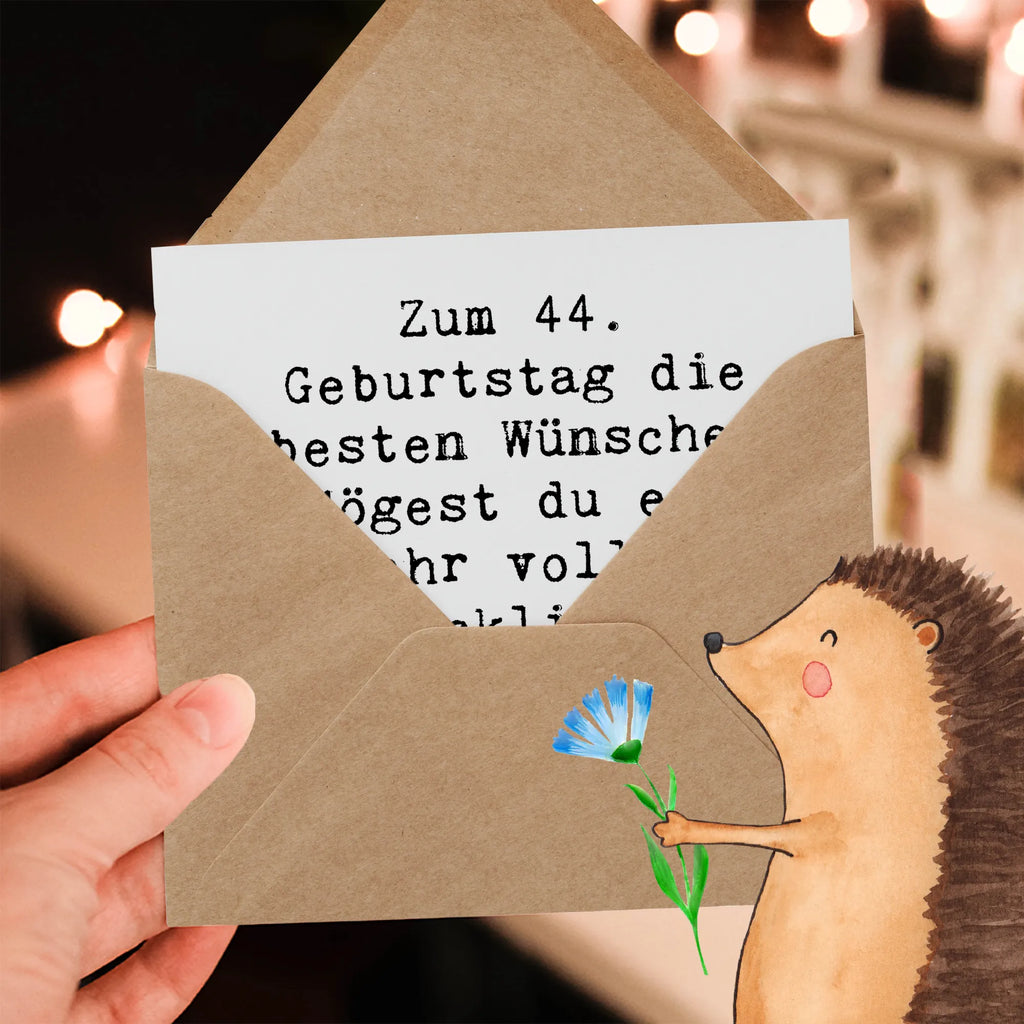 Zum 44.
Geburtstag die
besten Wünsche
Mögest du
voll